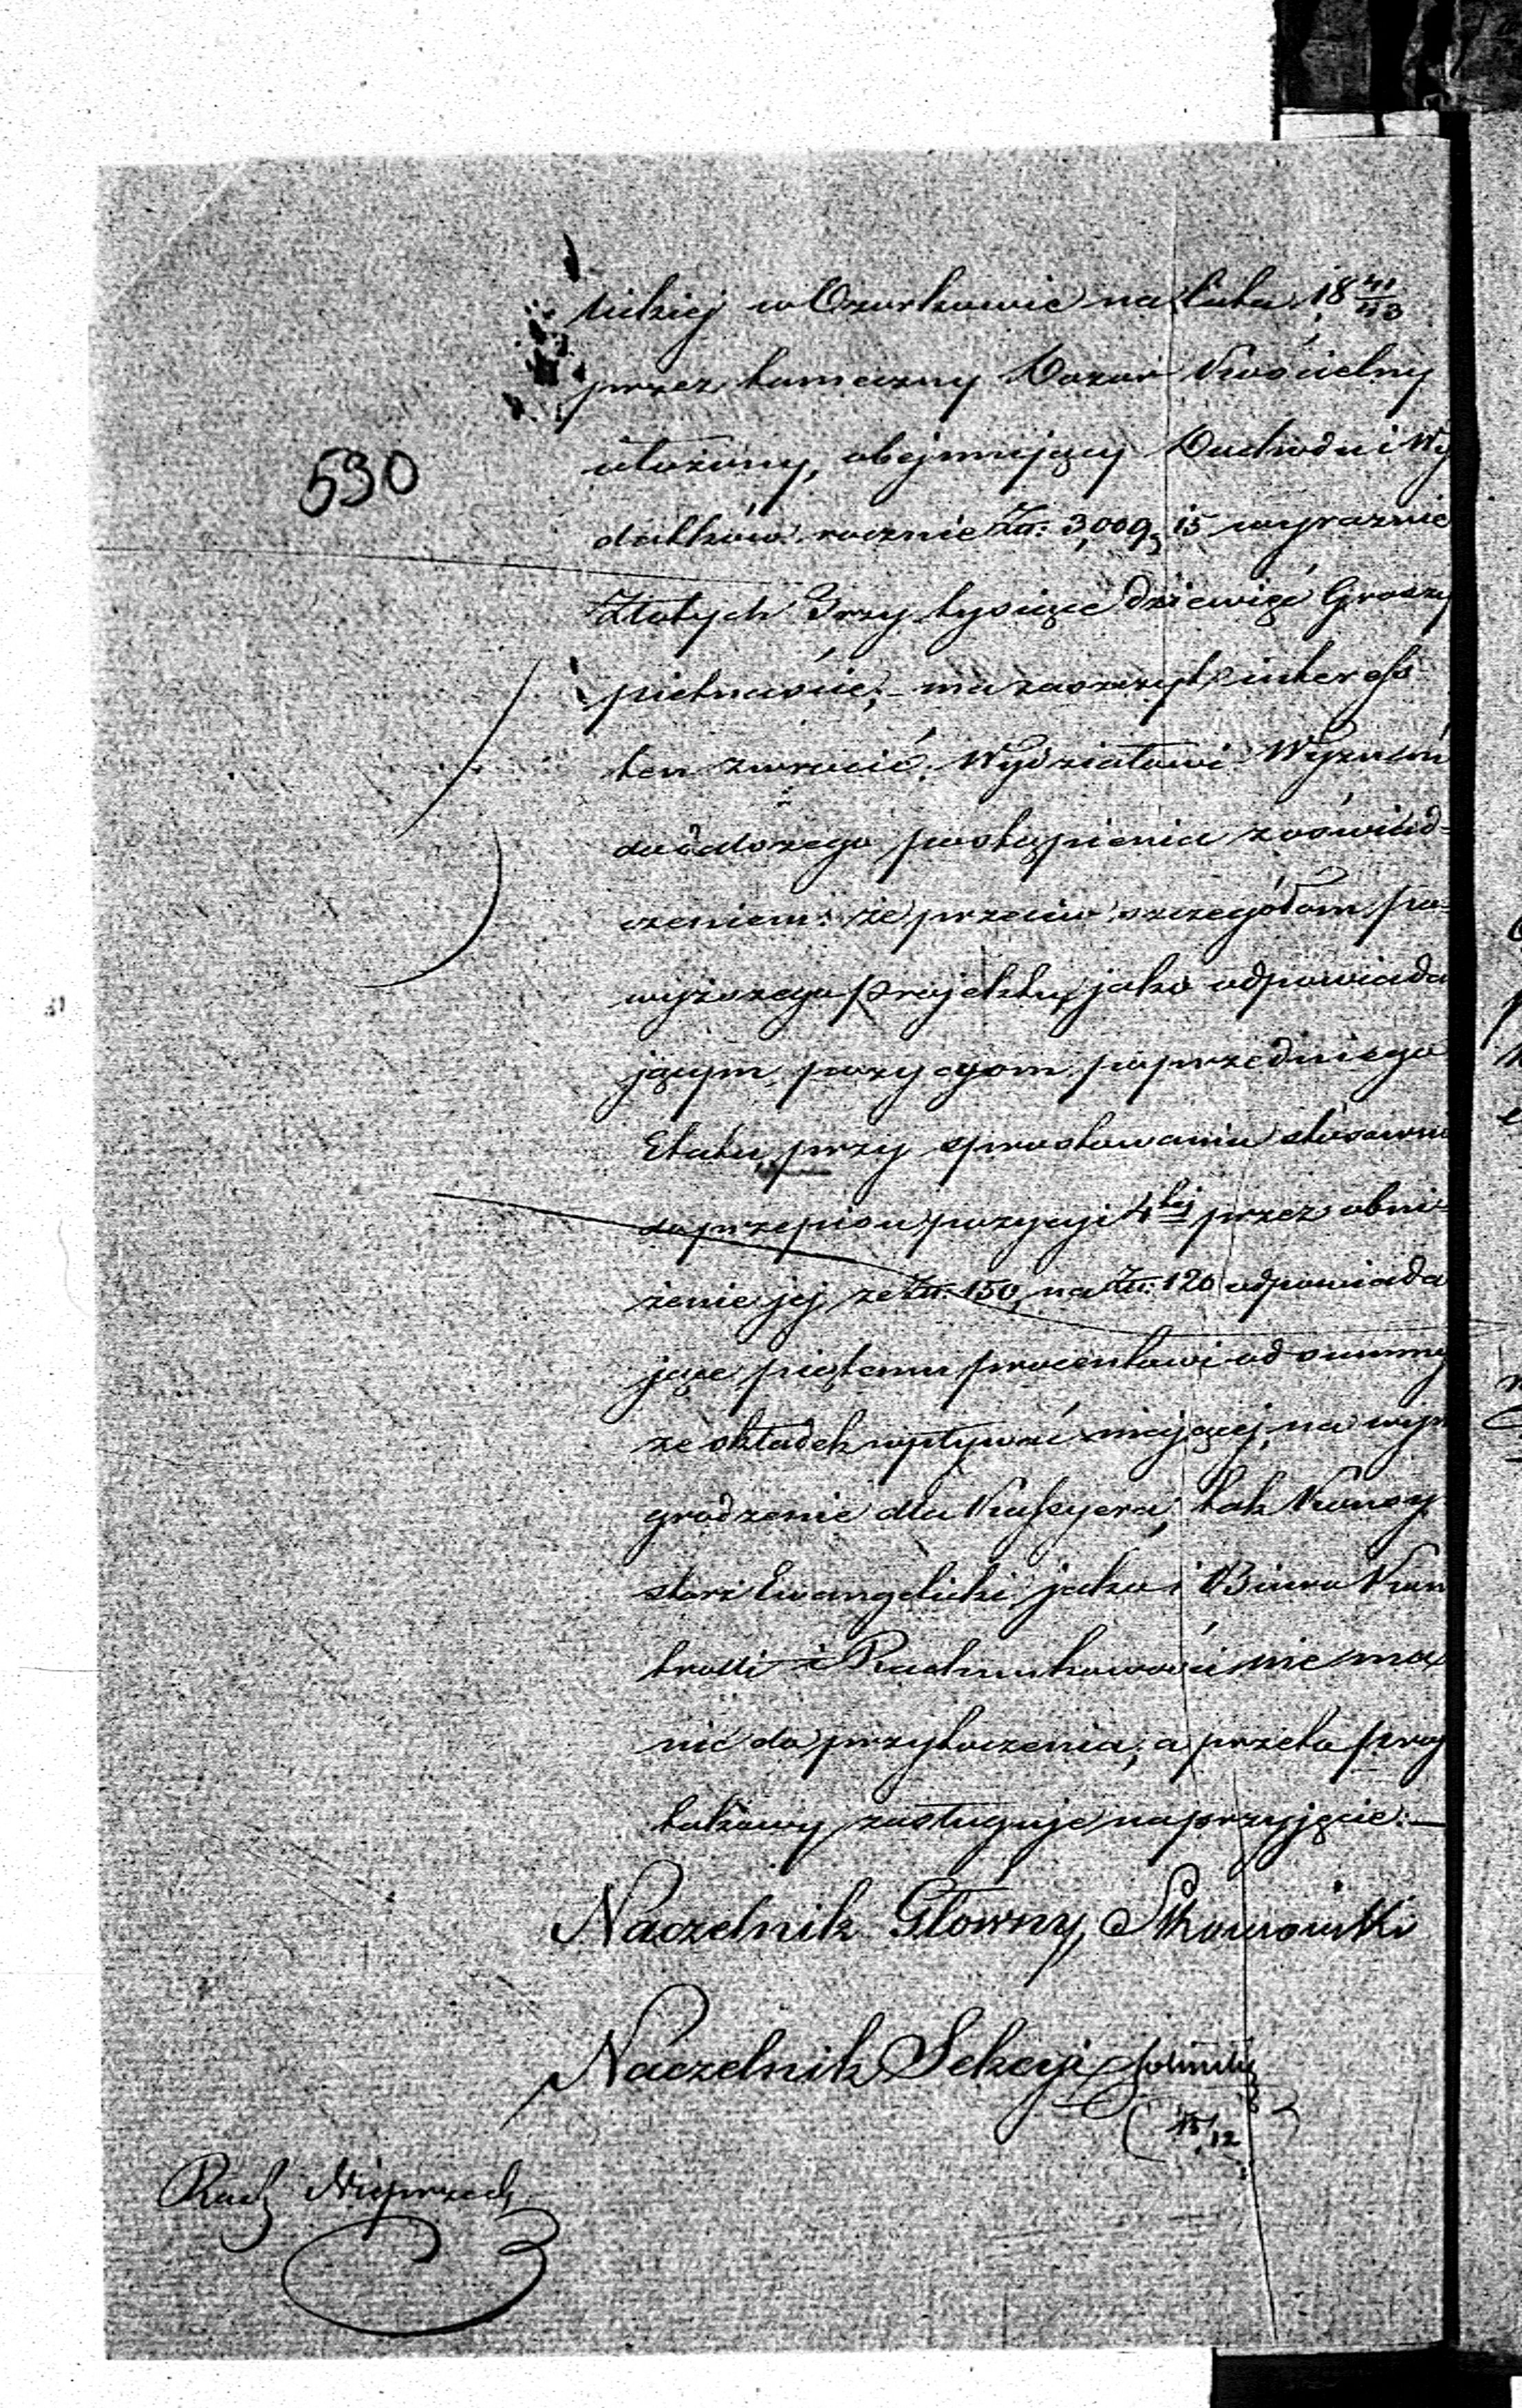 lickiej w Ozorkowie na lata 18 41/43
przez tameczny Dozór Kościelny
ułożony, obejmujący Dochodu i Wy
datków rocznie Złt: 3,009, 15 wyraźnie
Złotych Trzy tysiące dziewięć Groszy
pietnaście; – ma zaszczyt interess
ten zwrócić Wydziałowi Wyznań
do dalszego postąpienia z oświad-
czeniem: że przeciw szczegółom po-
wyższego projektu, jako odpowiada
jącym pozycyom poprzedniego
Etatu, przy sprostowaniu stosownie
do przepisu pozycyi 4tej przez obni-
żenie jej ze Złt: 150, na Złt: 120 odpowiada
jące piątemu procentowi od summy
ze składek wpływać mającej, na wyna
grodzenie dla Kassyera; tak Konsy
storz Ewangelicki jako i Biuro Kon
trolli i Rachunkowości nie ma
nic do przytoczenia; a przeto proj
takowy zasługuje na przyjęcie. –
590
Naczelnik Główny,
Naczelnik Sekcyi
15/12
Rach